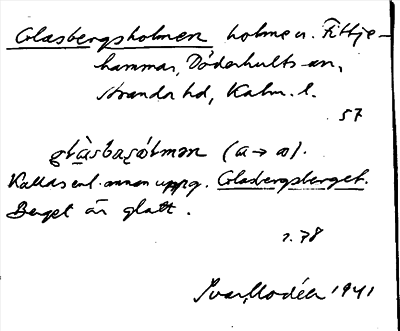 Glasbergsholmen, holme n. Fittje-
hammar, Döderhults sn,
Stranda hd, Kalm. l.
57
glàsbaşólmən (a → ɷ).
Kallas enl. annan uppg. Glasbergsberget.
Berget är glatt.
s. 78
Ivar Modéer 1941